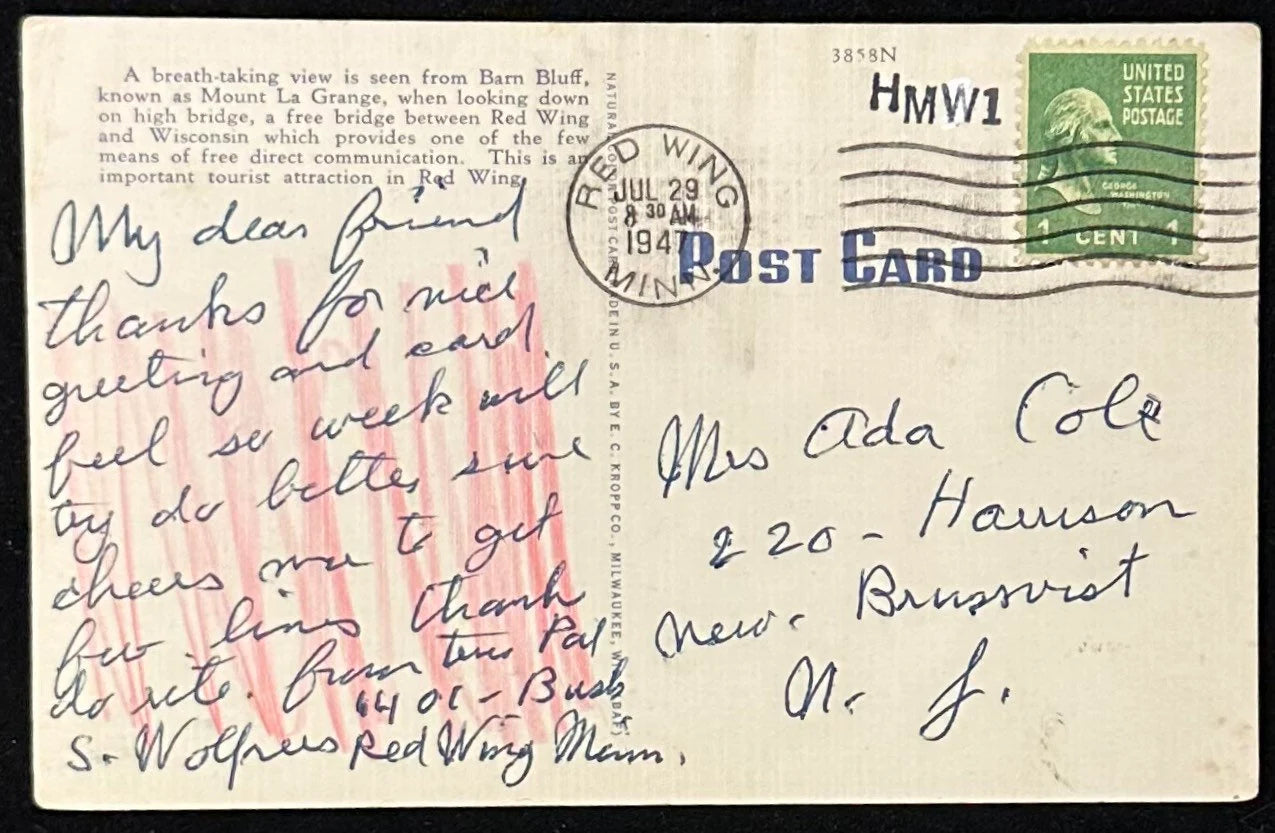 A breath-taking view is seen from Barn Bluff,
known as Mount La Grange, when looking down
on high bridge, a free bridge between Red Wing
and Wisconsin which provides one of the few
means of free direct communication. This is an
important tourist attraction in Red Wing.
My dear friend
thanks for nice
greeting and card.
feel so week will
try do better sure
cheers me to get
few lines thank
do rite. from true Pal
1401 - Bush
S. Wolfrus Red Wing Minn.
NATURAL COLOR POST CARD MADE IN U.S.A. BY E. C. KROPP CO., MILWAUKEE, WIS.
3858N
HMW1
UNITED
STATES
POSTAGE
GEORGE
WASHINGTON
1 CENT 1
RED WING
JUL 29
8 30 AM
1947
MINN.
POST CARD
Mrs Ada Cole
220 - Harrison
New. Brunsvist
N. J.